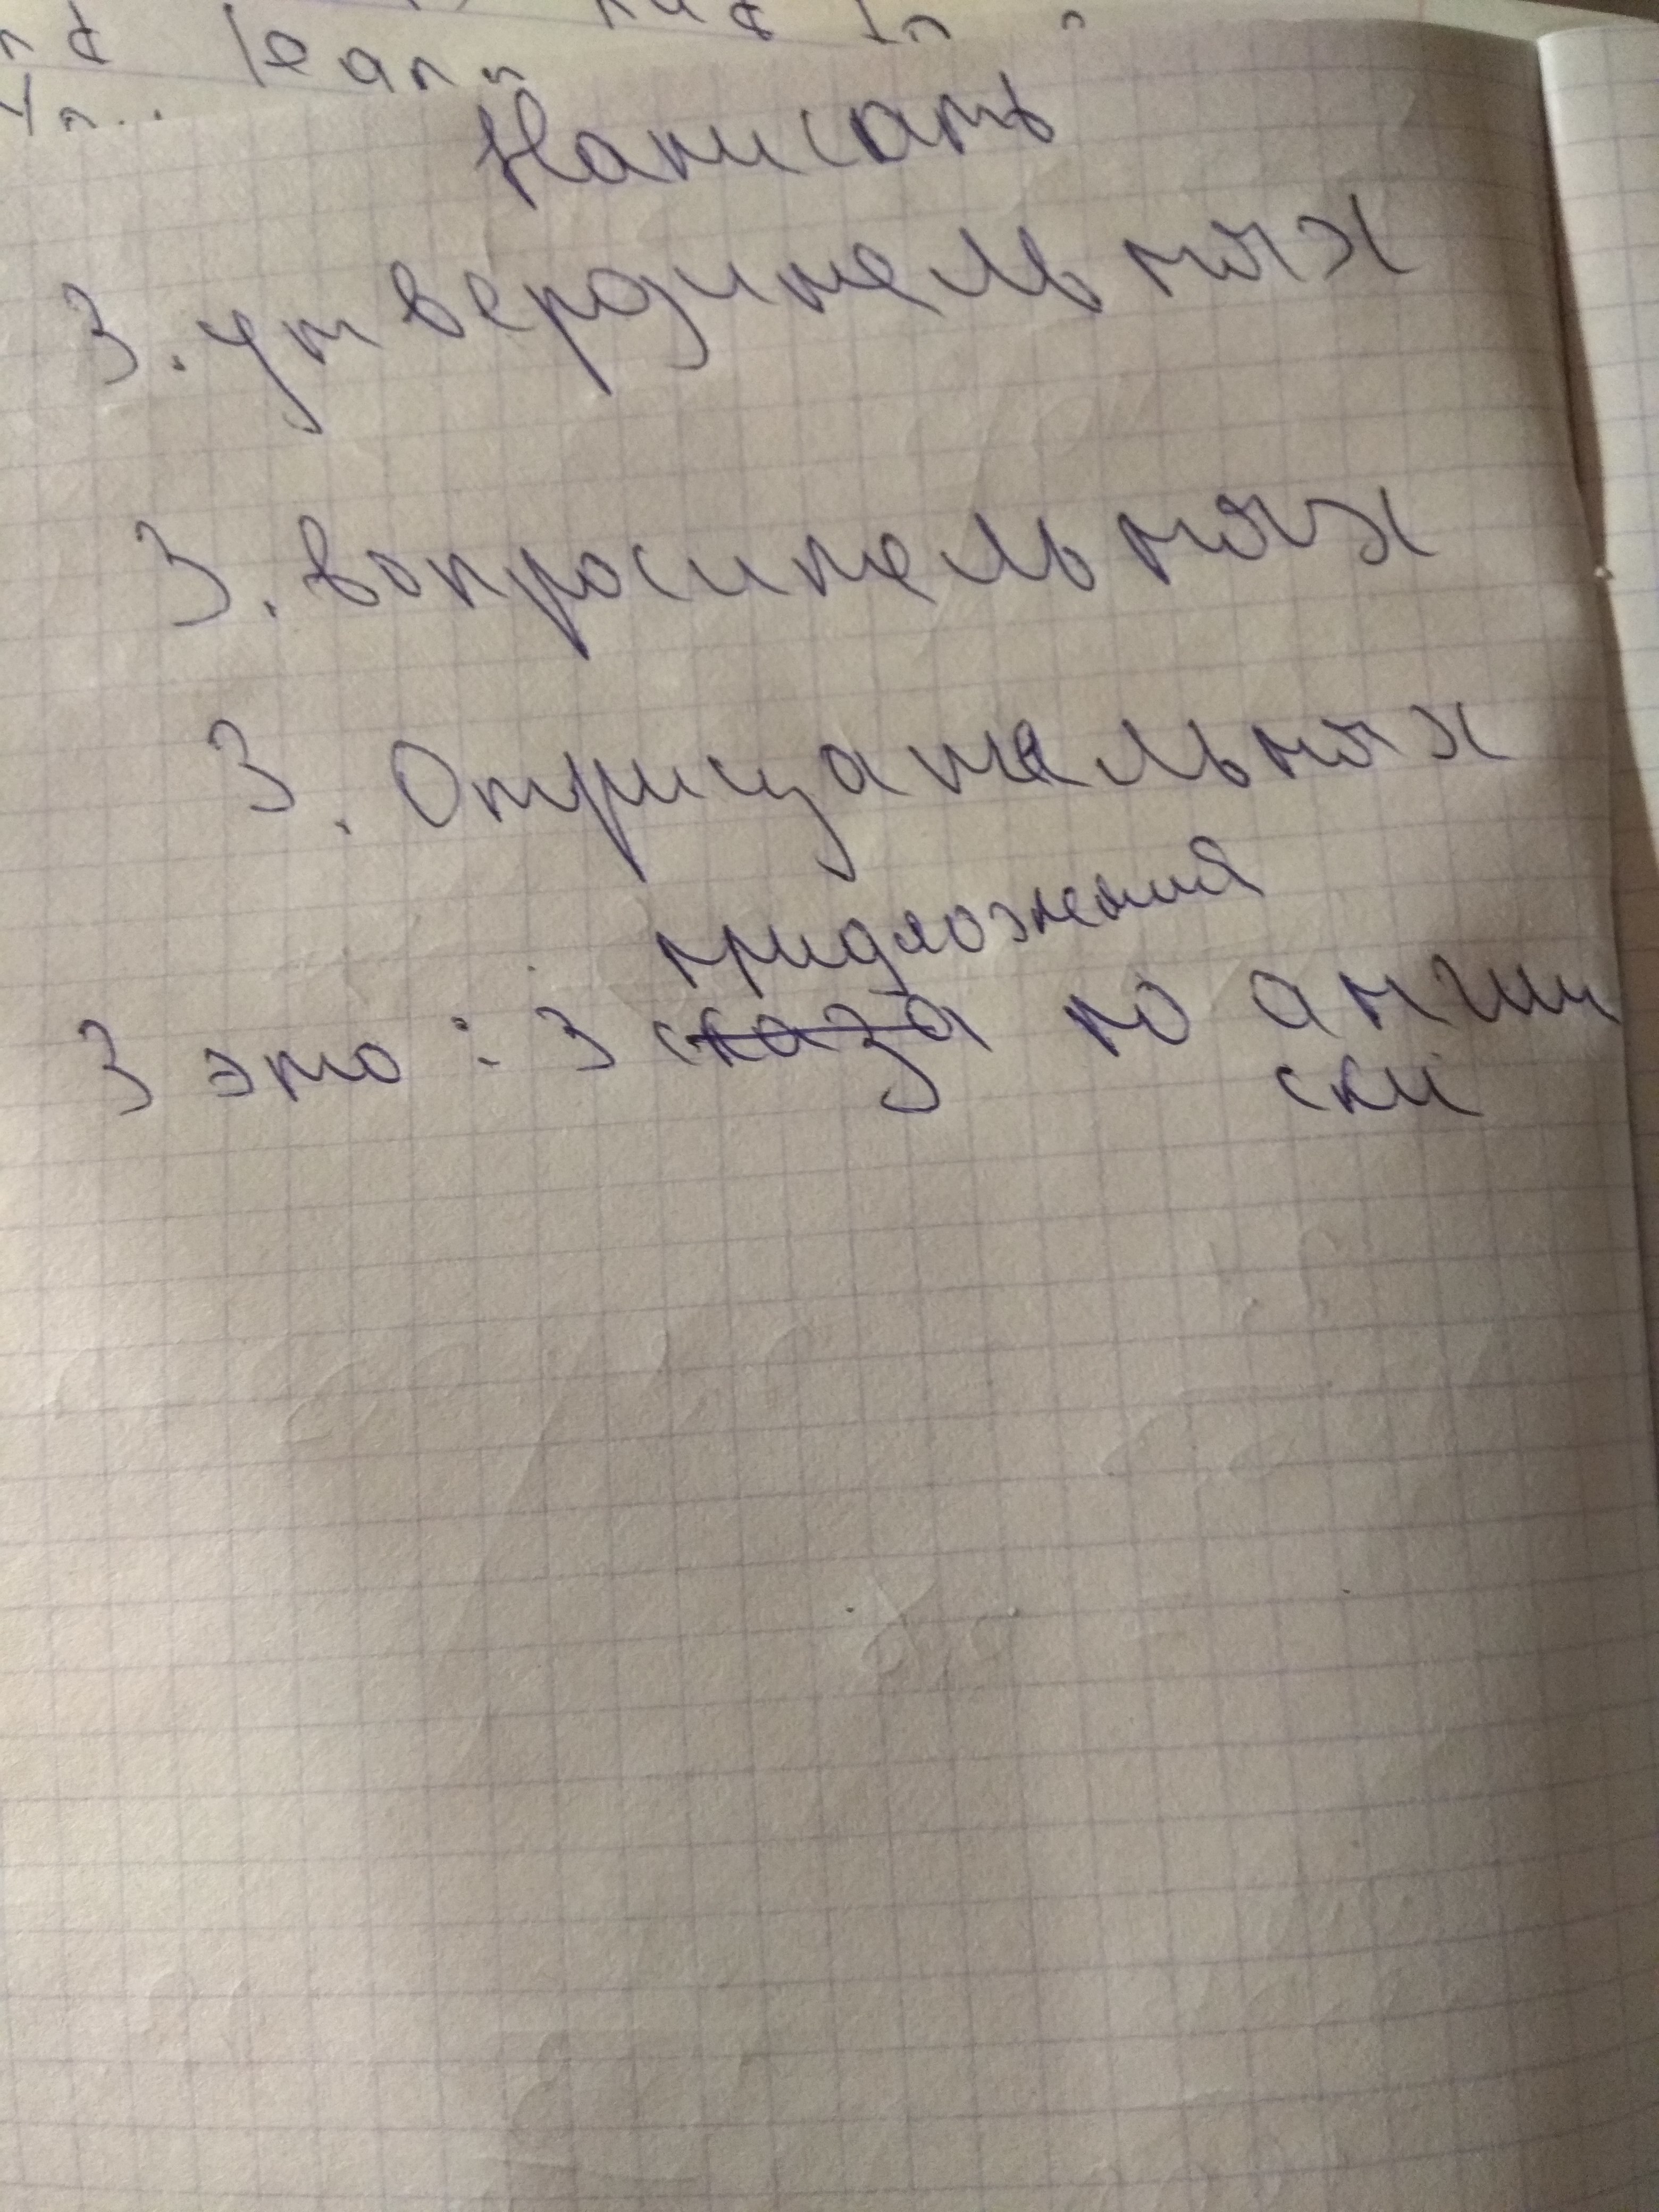 leann
Написать
3. утвердительных
3. вопросительных
3. Отрицательных
придложения
3 это : 3 сказа по англи
ски